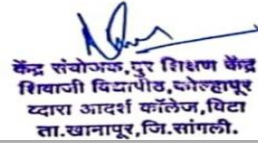 केंद्र संयोजक,दुर शिक्षण केंद्र
शिवाजी विद्यापीठ,कोल्हापूर
व्दारा आदर्श कॉलेज,विटा
ता.खानापूर,जि.सांगली.